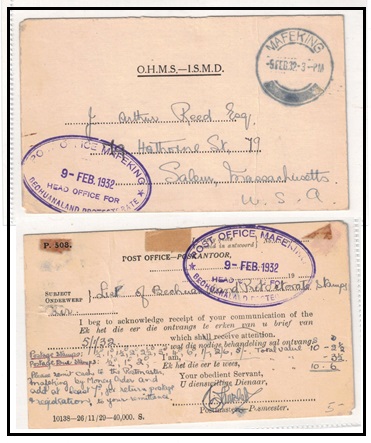 O.H.M.S.—I.S.M.D.
MAFEKING
-9 FEB 32 - 3 - PM
J. Arthur Reed Esq,
Hathorne St, 79
Salem, Massachusetts
U. S. A
POST OFFICE MAFEKING
9- FEB. 1932
HEAD OFFICE FOR
BECHUANALAND PROTECTORATE
P. 503.
POST OFFICE—POSKANTOOR,
POST OFFICE MAFEKING
9- FEB. 1932
HEAD OFFICE FOR
BECHUANALAND
19
SUBJECT
ONDERWERP
List of Bechuanaland Protectorate Stamps
Sir
I beg to acknowledge receipt of your communication of the
Ek het die eer die ontvangs te erken van u brief van
5/1/32
which shall receive attention.
wat die nodige behandeling sal ontvang
Postage Stamps:
Total value 10 - 2½
I am,
Ek het die eer te wees,
3½
10 - 6
Please remit cash to the Postmaster
Mafeking by Money Order and
add at least return postage
registration to your remittance
Your obedient Servant,
U dienswillige Dienaar,
Postmaster Posmeester.
10138—26/11/29—40,000. S.
5-